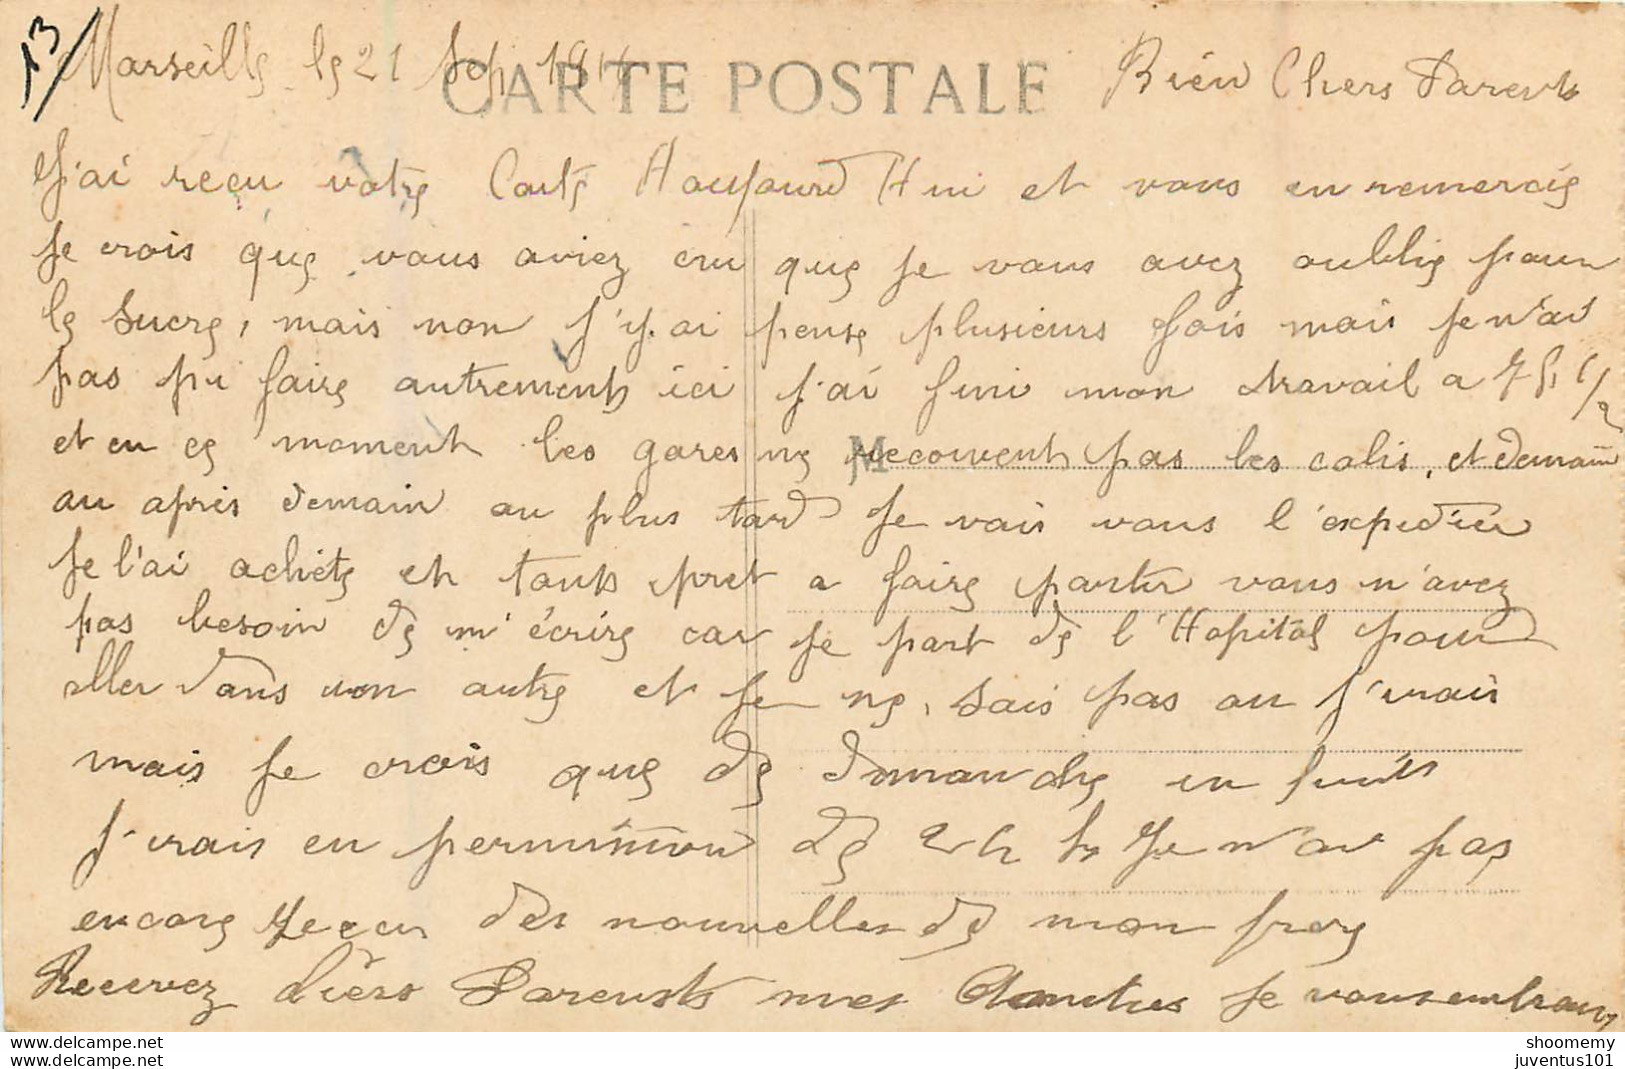 13
Marseille le 21 Sep 1914 Bien Chers Parents
CARTE POSTALE
J'ai reçu votre Carte Aoujourd Hui et vous en remercie
Je crois que vous aviez cru que je vous avez oublie pour
le sucre, mais non j'y ai pense plusieurs fois mais je n'ai
pas pu faire autrement ici j'ai fini mon travail a 7 h 1/2
et en ce moment les gares ne recoivent pas les colis, et demain
M
au après demain au plus tard Je vais vous l'expedier
Je l'ai achete et tout pret a faire partir vous n'avez
pas besoin de m'écrire car je part de l'Hopital pour
aller dans un autre et je ne sais pas ou j'irais
mais je crois que de demande en suite
J'irais en permission de 24 h Je n'ai pas
encore recu des nouvelles de mon frere
Recevez Chers Parents mes Je vous embrasse
shoomemy
juventus101